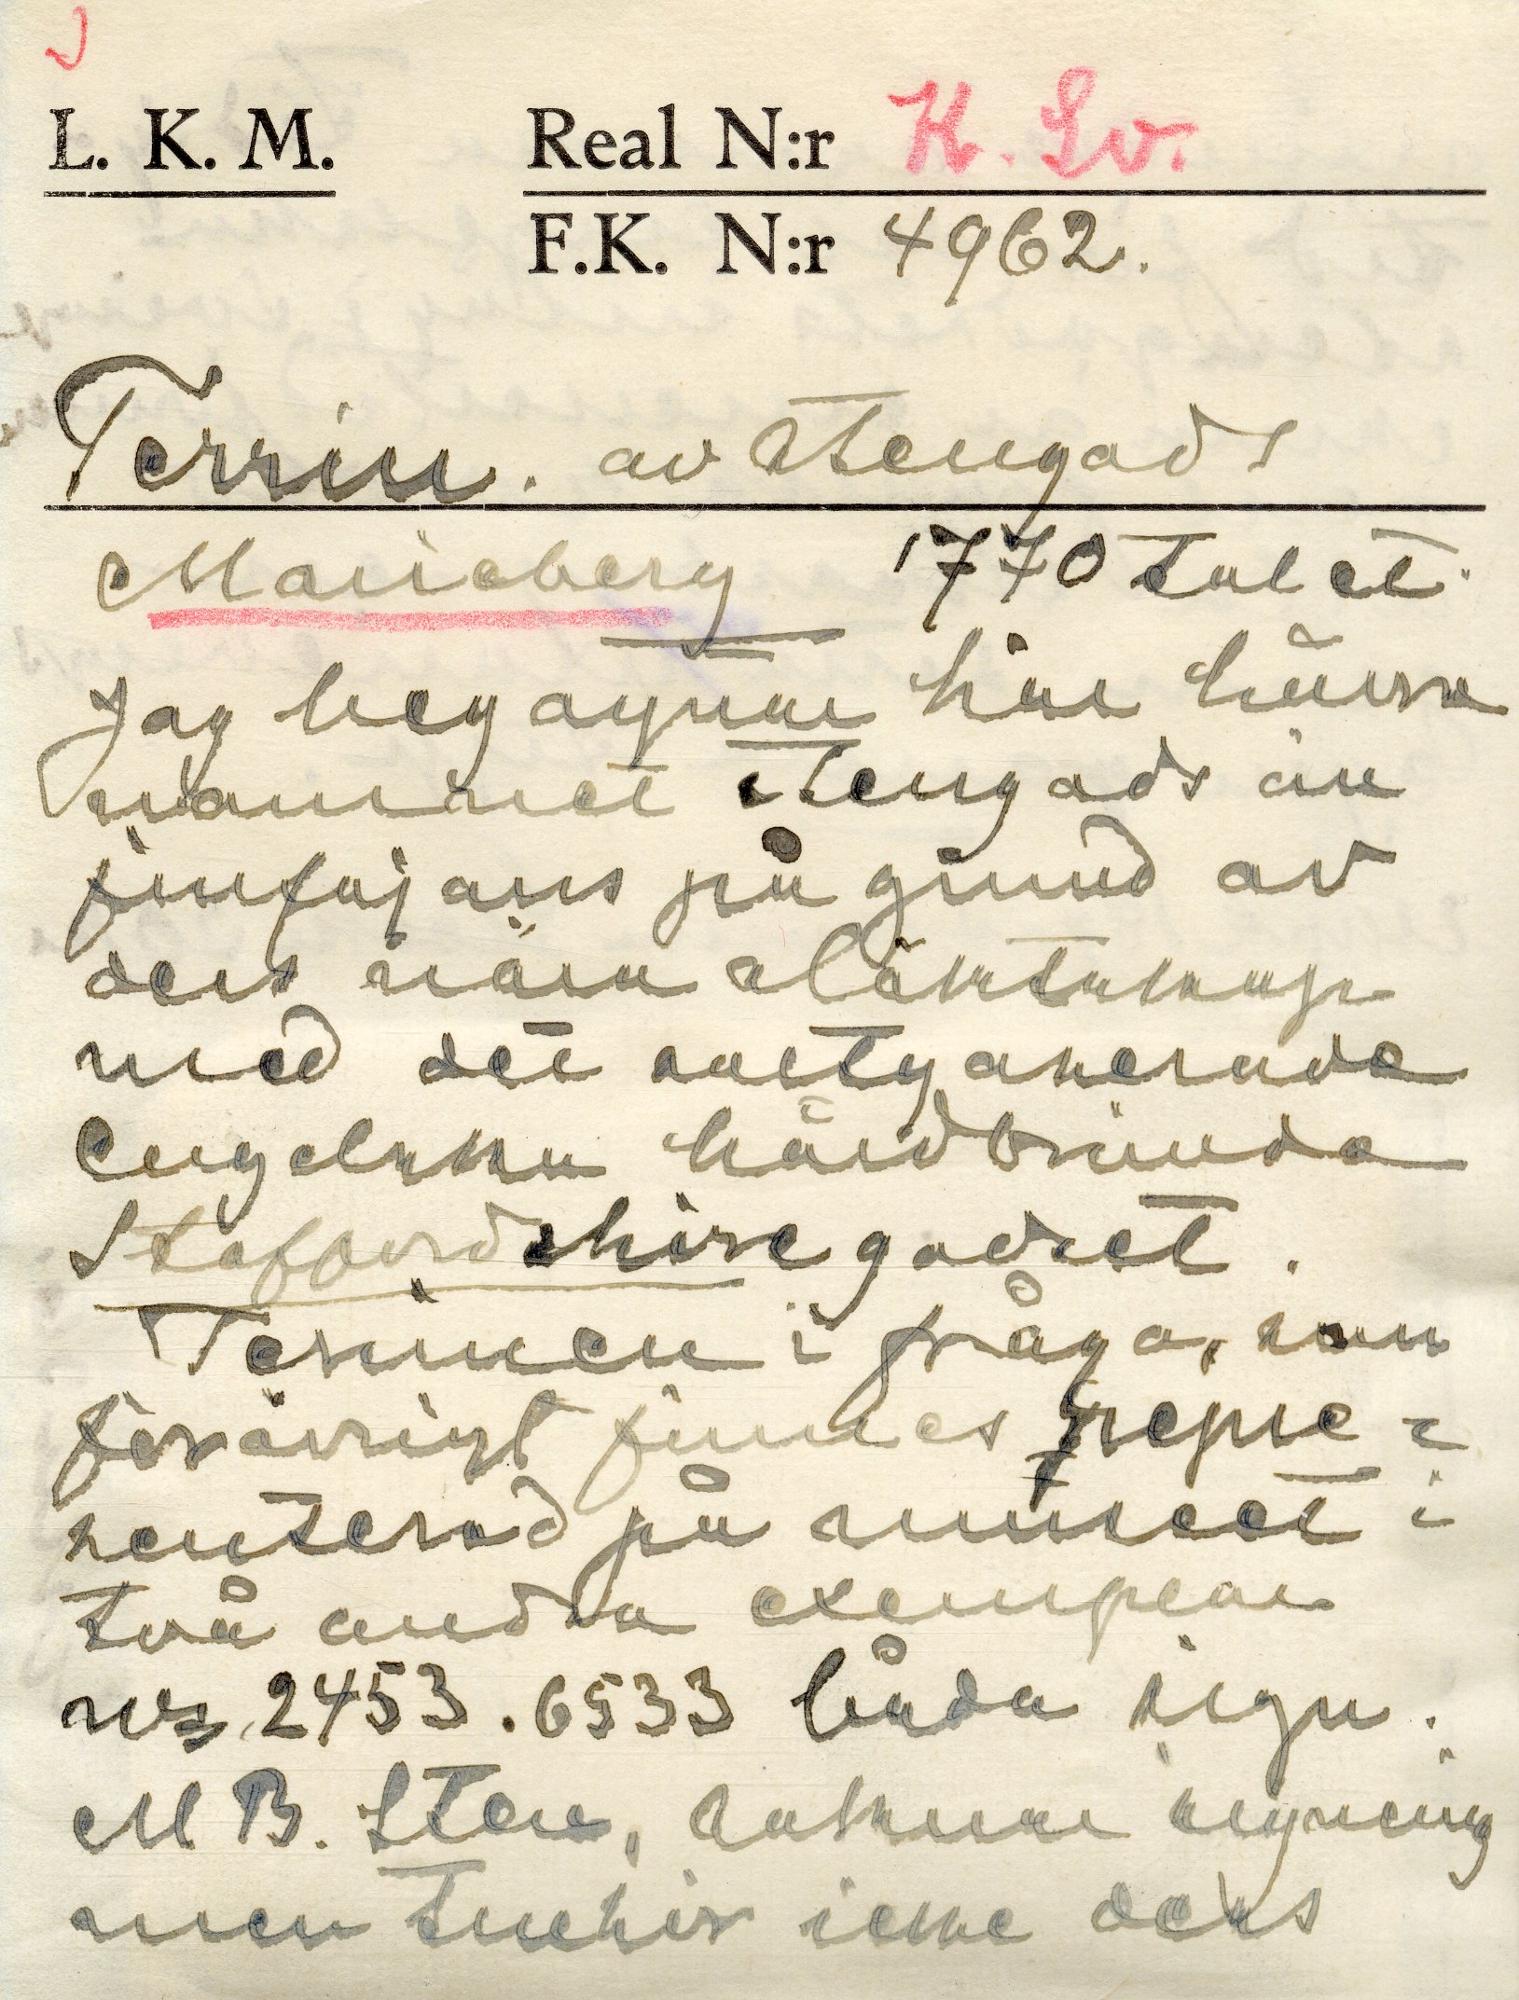 L. K. M. Real N:r K. Sv.
F.K. N:r 4962.
Terrin. av stengods
Marieberg 1770 talet.
Jag begagnar här hävre
namnet stengods än
finfajans på grund av
dess nära släktskap
med det
engelska hårdbrända
Staffordshiregodset.
Terrinen i fråga, som
förövrigt finnes repre=
senterad på museet i
två andra exemplar
nr 2453. 6533 båda sign.
MB. Sten, saknar signering
men dess